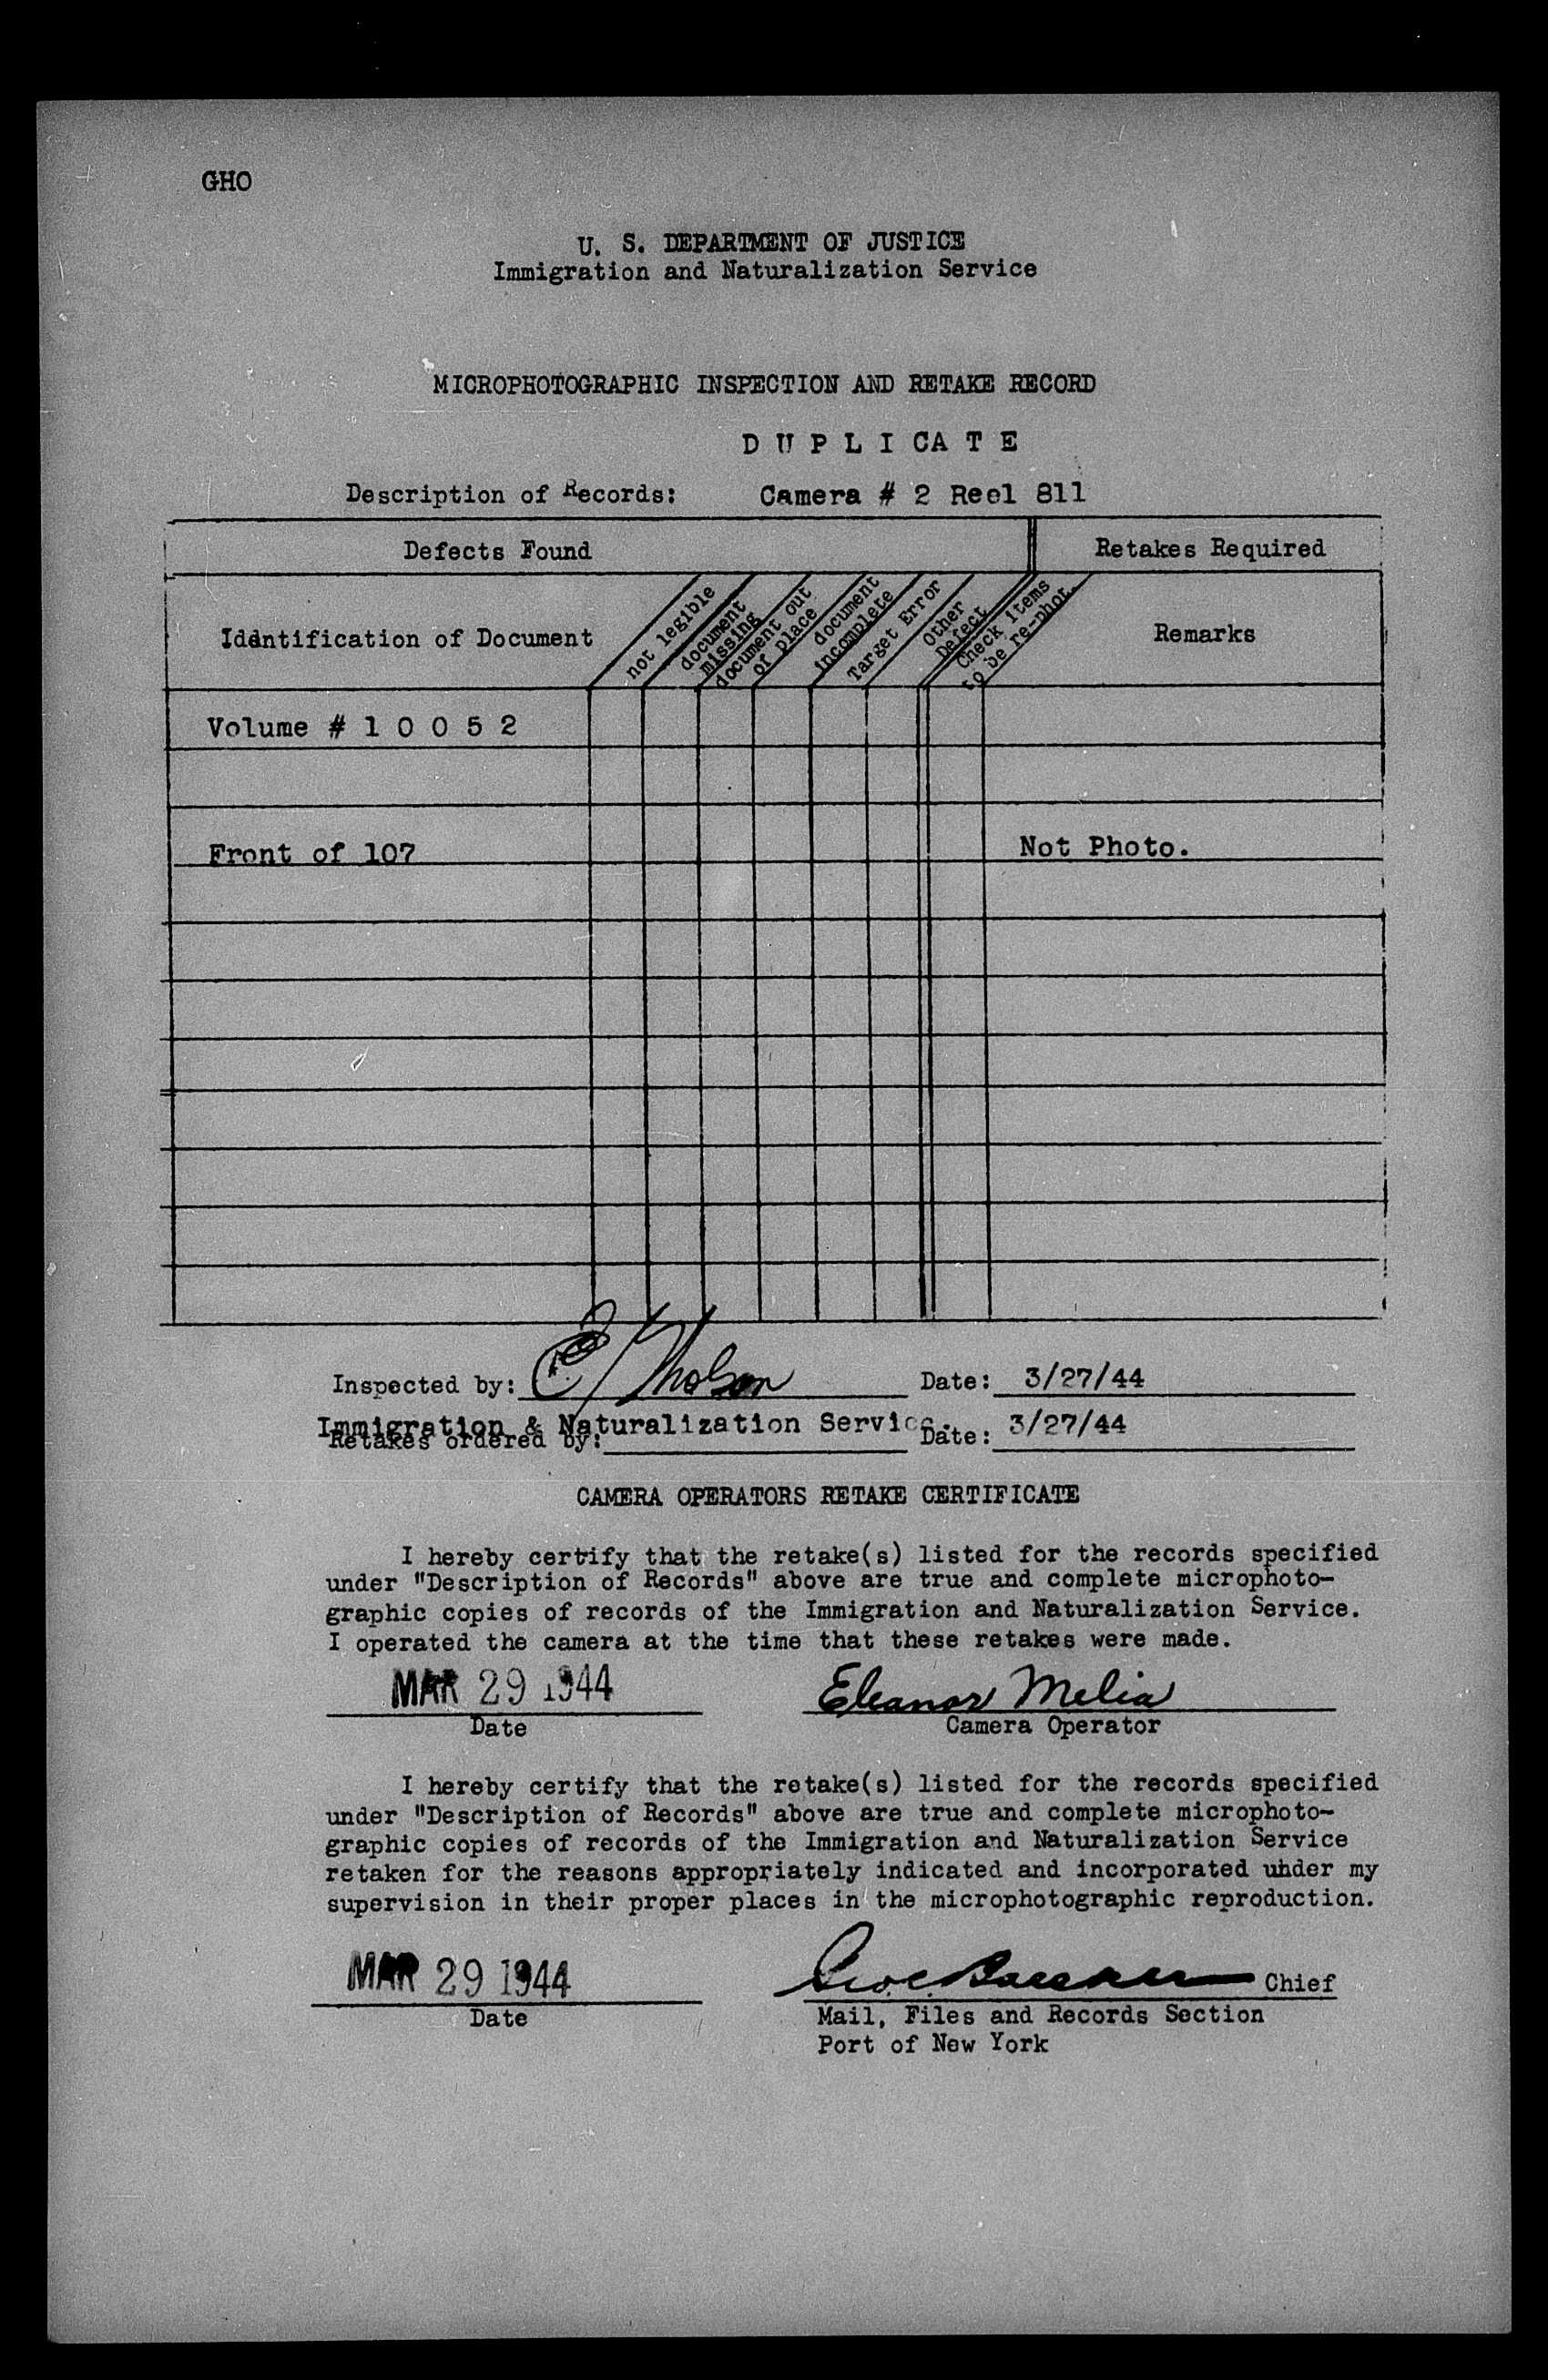 GHO
U. S. DEPARTMENT OF JUSTICE
Immigration and Naturalization Service
MICROPHOTOGRAPHIC INSPECTION AND RETAKE RECORD
D U P L I CA T E
Description of Records: Camera # 2 Reel 811
Defects Found Retakes Required
Identification of Document
not legible
document
missing
document out
of place
document
incomplete
Target Error
Other
Defect
Check items
to be re-phot.
Remarks
Volume # 1 0 0 5 2
Front of 107 Not Photo.
Inspected by: Date: 3/27/44
Immigration & Naturalization Service. 3/27/44
Retakes ordered by: Date:
CAMERA OPERATORS RETAKE CERTIFICATE
I hereby certify that the retake(s) listed for the records specified
under "Description of Records" above are true and complete microphoto-
graphic copies of records of the Immigration and Naturalization Service.
I operated the camera at the time that these retakes were made.
MAR 29 1944 Eleanor Melia
Date Camera Operator
I hereby certify that the retake(s) listed for the records specified
under "Description of Records" above are true and complete microphoto-
graphic copies of records of the Immigration and Naturalization Service
retaken for the reasons appropriately indicated and incorporated under my
supervision in their proper places in the microphotographic reproduction.
MAR 29 1944 Chief
Date Mail, Files and Records Section
Port of New York